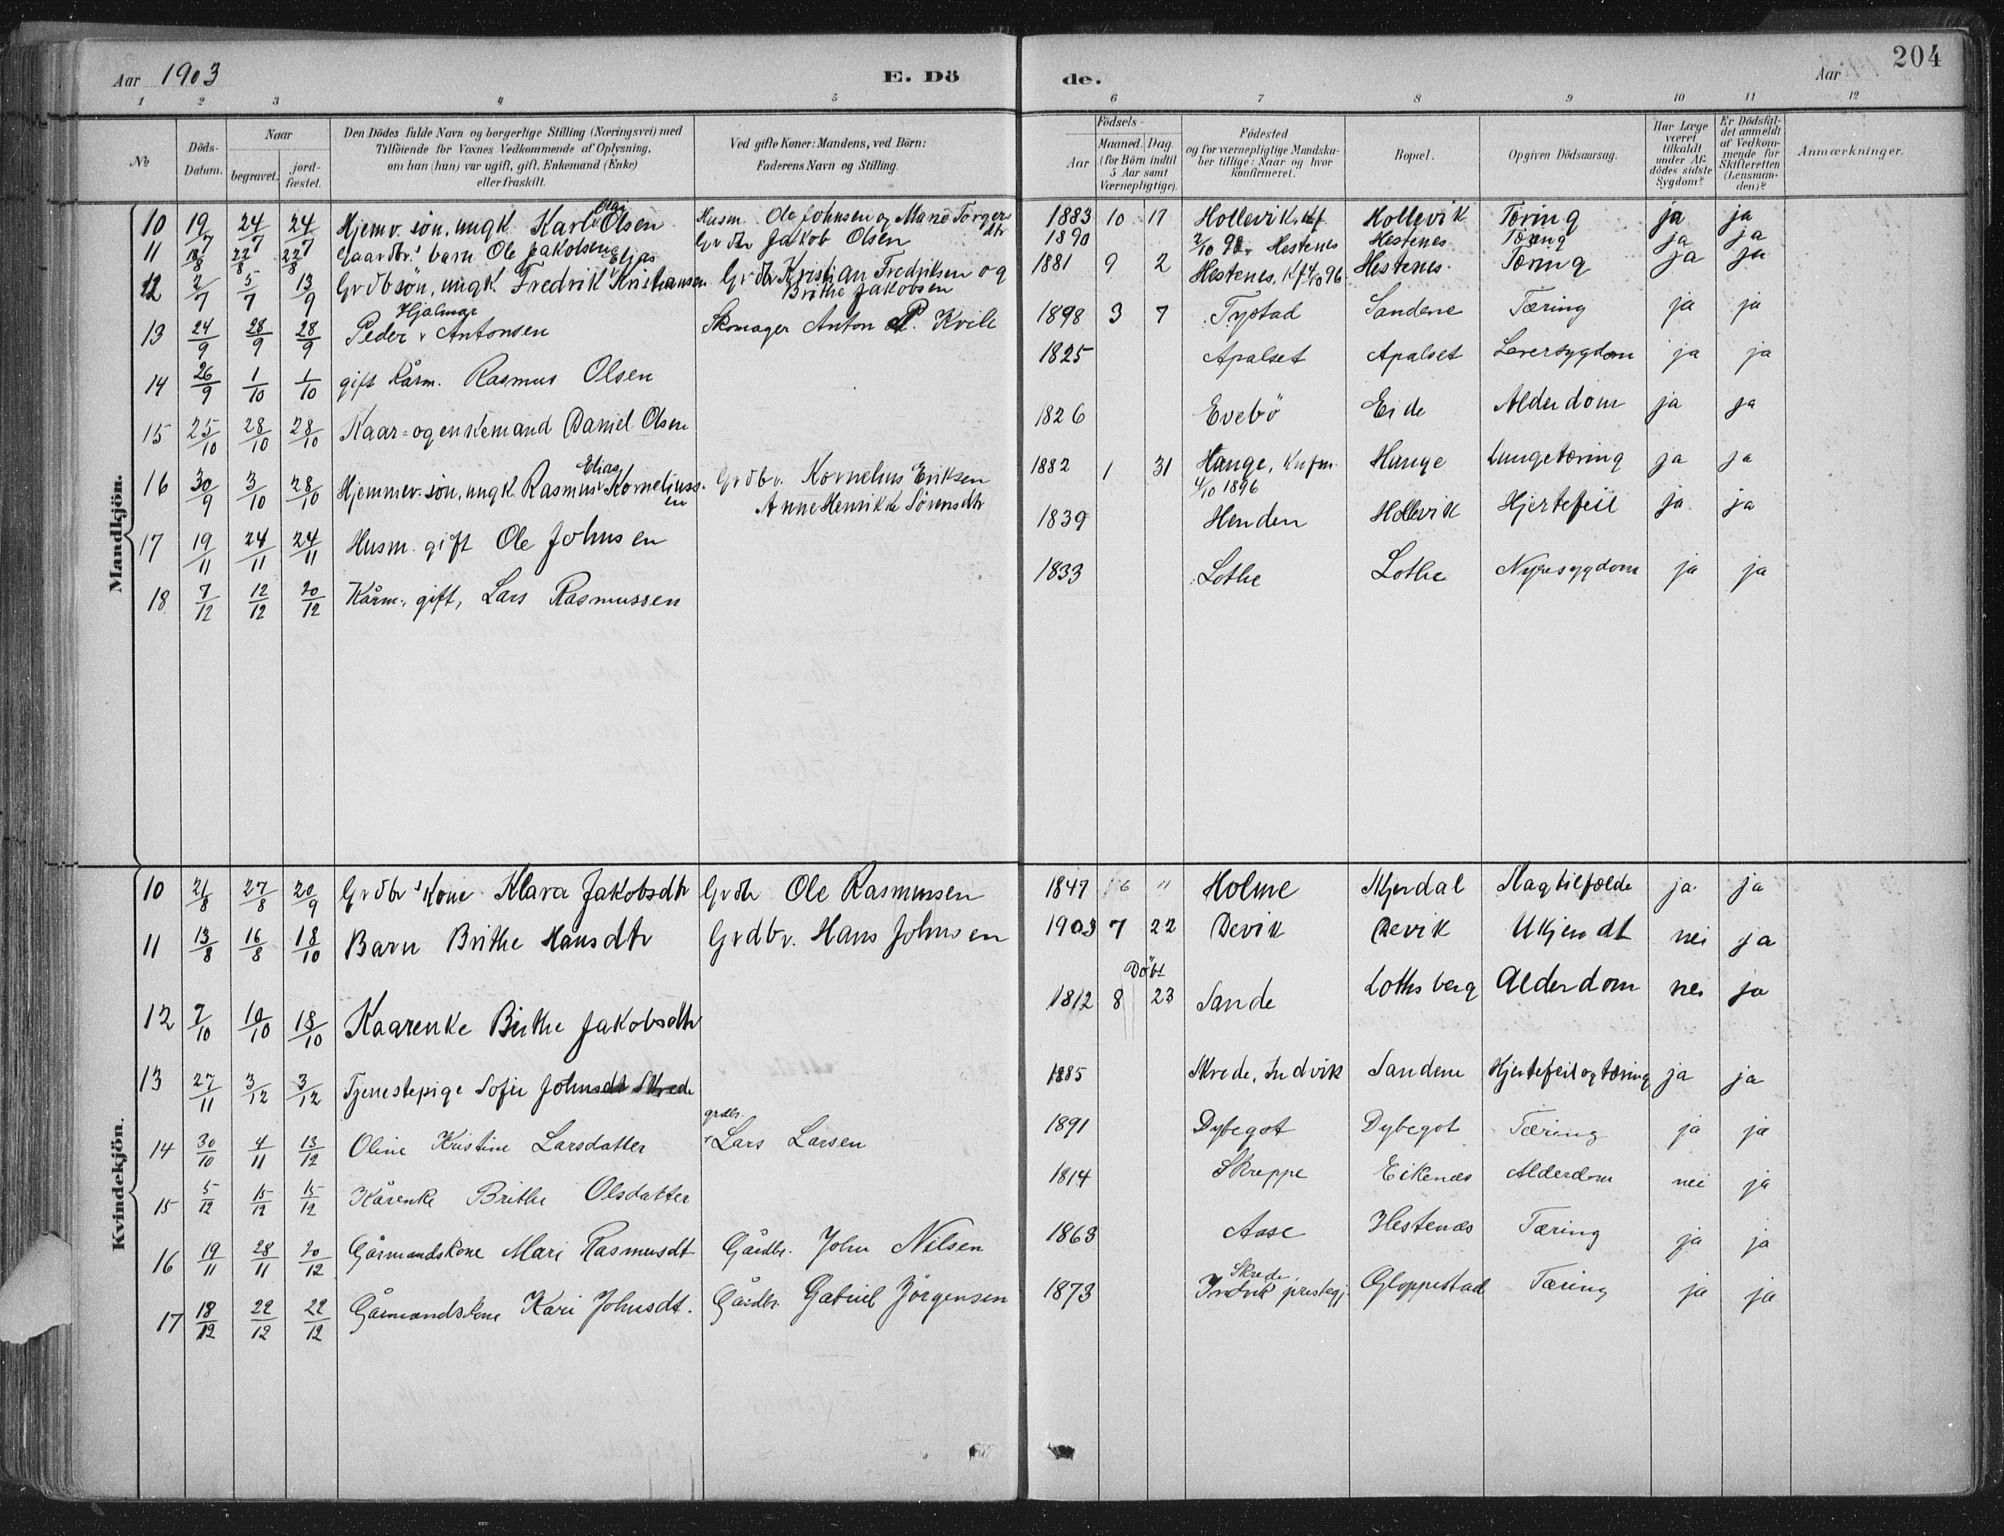 Aar 1903 E. Dö de. Aar 204
1 2 3 4 5 6 7 8 9 10 11 12
No Döds-Datum. Naar begravet. jordfæstet. Den Dödes fulde Navn og borgerlige Stilling (Næringsvei) med Tilföiende for Voxnes Vedkommende af Oplysning, om han (hun) var ugift, gift, Enkemand (Enke) eller fraskilt. Ved gifte Koner: Mandens, ved Börn: Faderens Navn og Stilling. Födsels- Aar Maaned. Dag. (for Börn indtil 5 Aar samt Værnepligtige). Födested og for værnepligtige Mandskaber tillige: Naar og hvor konfirmeret. Bopæl. Opgiven Dödsaarsag. Har Læge været tilkaldt under Afdödes sidste Sygdom? Er Dödsfaldet anmeldt af Vedkommende for Skifteretten (Lensmanden)? Anmærkninger.
Mandkjön.
10 19/7 24/7 24/7 Hjemv. søn, ungk. Karl Olai Olsen Husm. Ole Johnsen og Torgersdtr 1883 10 17 Hollevik, Hollevik Tæring ja ja
11 18/8 22/8 22/8 Gaardbr.s barn Ole Jakobsen Grdbr Jakob Olsen 1890 Hestenes Hestenes Tæring ja ja
12 2/7 5/7 13/9 Grdb søn, ungk. Fredrik Elias Kristiansen Grdbr Kristian Fredriksen og Brithe Jakobsen 1881 9 2 Hestenes, Kf 4/10 96 Hestenes Tæring ja ja
13 24/9 28/9 28/9 Peder Hjalmar Antonsen Skomager Anton P. Kvile 1898 3 7 Tystad Sandene Tæring ja ja
14 26/9 1/10 1/10 gift Kårm. Rasmus Olsen 1825 Apalset Apalset Leversygdom ja ja
15 25/10 28/10 28/10 Kaar= og enkemand Daniel Olsen 1826 Evebö Eide Alderdom ja ja
16 30/9 3/10 28/10 Hjemmev. søn, ungk. Rasmus Elias Kornelius­sen Grdbr. Kornelius Eriksen Anne Henrikke Sörensdtr 1882 1 31 Hauge, Knfm. 4/10 1896 Hauge Lungetæring ja ja
17 19/11 24/11 24/11 Husm. gift Ole Johnsen 1839 Henden Hollevik Hjertefeil ja ja
18 7/12 12/12 20/12 Kårm., gift, Lars Rasmussen 1833 Lothe Lothe Nyresygdom ja ja
Kvindekjön.
10 21/8 27/8 20/9 Grdbr's Kone Klara Jakobsdtr Grdbr Ole Rasmussen 1847 6 " Holme Mjerdal Slagtilfælde ja ja
11 13/8 16/8 18/10 Barn Brithe Hansdtr Grdbr. Hans Johnsen 1903 7 22 Devik Devik Ukjendt nei ja
12 7/10 10/10 18/10 Kaarenke Birthe Jakobsdtr 1812 8 Döbt 23 Sande Lothsberg Alderdom nei ja
13 27/11 3/12 3/12 Tjenestepige Sofie Johnsdt Skrede 1885 Skrede, Indvik Sandene Hjertefeil og tæring ja ja
14 30/10 4/11 13/12 Oline Kristine Larsdatter grdbr. Lars Larsen 1891 Dybegot Dybegot Tæring ja ja
15 5/12 15/12 15/12 Kårenke Brithe Olsdatter 1814 Skreppe Eikenæs Alderdom nei ja
16 19/11 28/11 20/12 Gårmandskone Mari Rasmusdt Gårdbr. John Nilsen 1863 Aase Hestenæs Tæring ja ja
17 18/12 22/12 22/12 Gårmandskone Kari Johnsdt. Gårdbr. Gabriel Jörgensen 1873 Skrede, Indvik prestegj Gloppestad Tæring ja ja